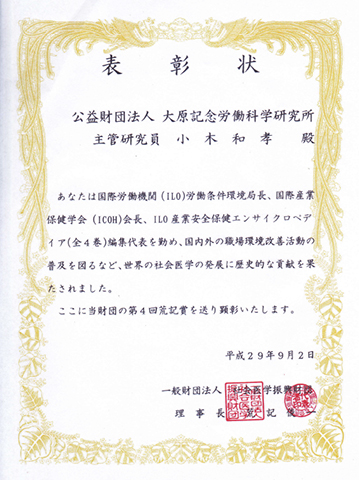 表彰状
公益財団法人 大原記念労働科学研究所
主管研究員 小木和孝 殿
あなたは国際労働機関(ILO)労働条件環境局長、国際産業
保健学会(ICOH)会長、ILO産業安全保健エンサイクロペデ
ィア(全4巻)編集代表を勤め、国内外の職場環境改善活動の
普及を図るなど、世界の社会医学の発展に歴史的な貢献を果
たされました。
ここに当財団の第4回荒記賞を送り顕彰いたします。
平成29年9月2日
一般財団法人 社会医学振興財団
理事長 荒記俊一